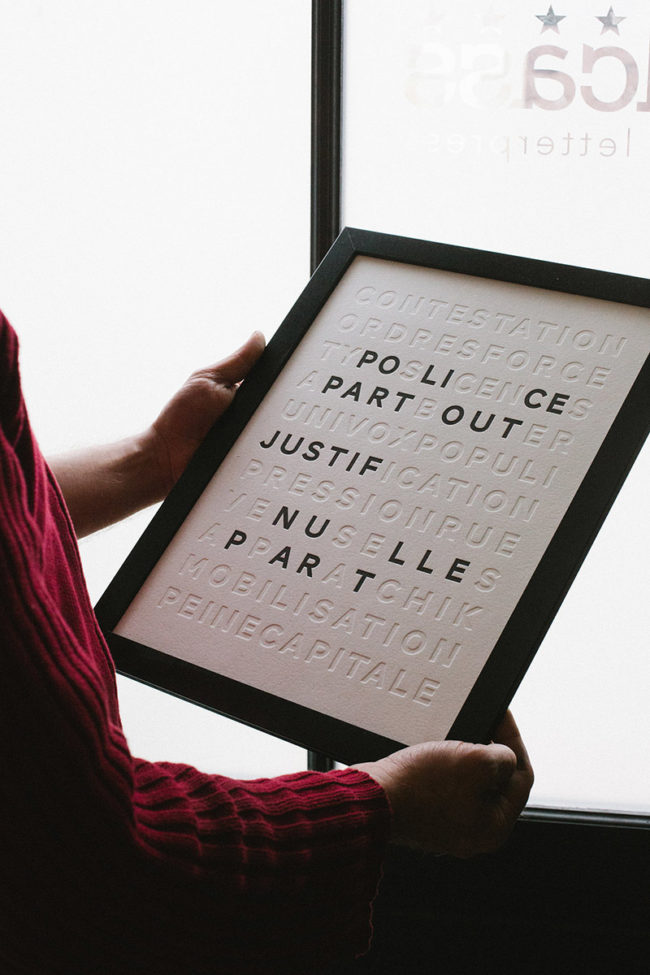 CONTESTATION
ORDRESFORCE
TYPOSLICENCES
APARTBOUTER
UNIVOXPOPULI
JUSTIFICATION
PRESSIONRUE
VENUSELLES
APPARATCHIK
MOBILISATION
PEINECAPITALE
letterpres